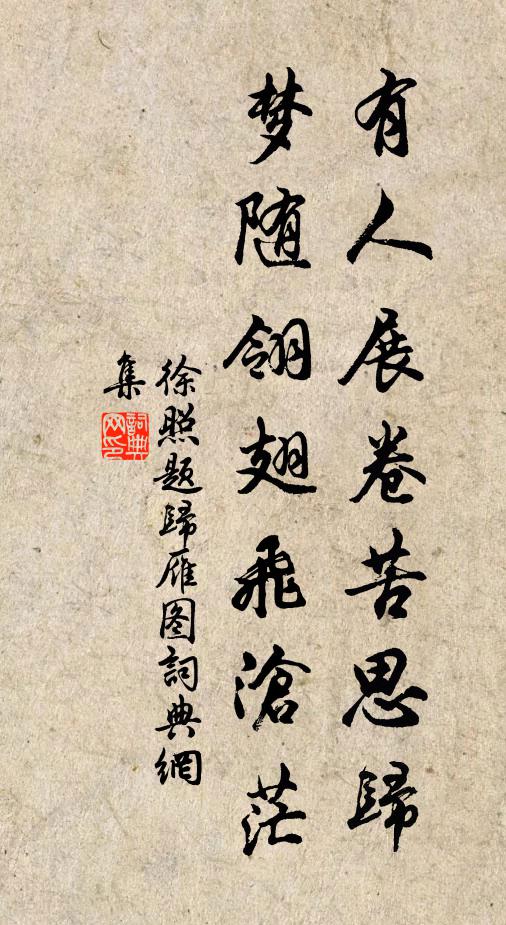 有人展卷苦思歸
梦随翎翅飛滄茫
徐照題歸雁图詞典網
集
詞典
网印